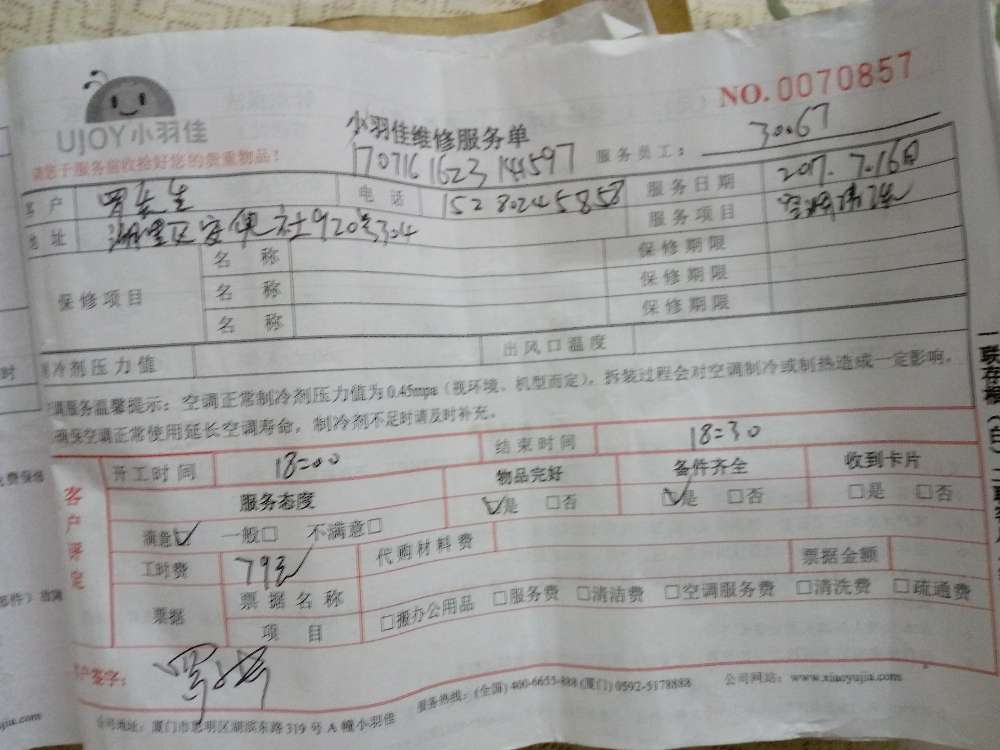 NO.0070857
UJOY小羽佳
小羽佳维修服务单
170716 1623 144597
服务员工: 30067
请您于服务前收拾好您的贵重物品!
客户 罗先生 电话 15280245858 服务日期 2017.7.16日
地址 湖里区安兜社920号304 服务项目 空调清洗
保修项目 名称 保修期限
名称 保修期限
名称 保修期限
制冷剂压力值 出风口温度
空调服务温馨提示: 空调正常制冷剂压力值为0.45mpa(视环境、机型而定), 拆装过程会对空调制冷或制热造成一定影响,
确保空调正常使用延长空调寿命, 制冷剂不足时请及时补充。
客户评定
开工时间 18:00 结束时间 18:30
服务态度 物品完好 备件齐全 收到卡片
满意☑ 一般□ 不满意□ ☑是 □否 ☑是 □否 □是 □否
工时费 79元 代购材料费 票据金额
票据 票据名称 □办公用品 □服务费 □清洁费 □空调服务费 □清洗费 □疏通费
项目
客户签字: 罗
公司地址: 厦门市思明区湖滨东路319号A幢小羽佳 服务热线: (全国) 400-6655-888 (厦门) 0592-5178888 公司网站: www.xiaoyujia.com